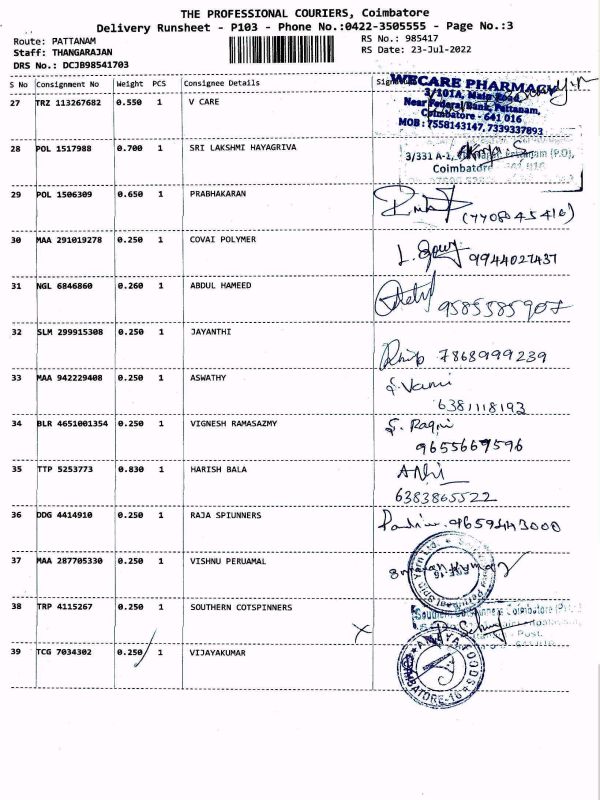 THE PROFESSIONAL COURIERS, Coimbatore
Delivery Runsheet - P103 - Phone No.:0422-3505555 - Page No.:3
Route: PATTANAM RS No.: 985417
Staff: THANGARAJAN RS Date: 23-Jul-2022
DRS No.: DCJB98541703
S No Consignment No Weight PCS Consignee Details
WECARE PHARMACY
27 TRZ 113267682 0.550 1 V CARE
3/101A, Main Road,
Near Federal Bank, Pattanam,
Coimbatore - 641 016
MOB : 7558143147, 7339337893
28 POL 1517988 0.700 1 SRI LAKSHMI HAYAGRIVA
3/331 A-1,
Coimbatore
29 POL 1506309 0.650 1 PRABHAKARAN
(7708045416)
30 MAA 291019278 0.250 1 COVAI POLYMER
9944027437
31 NGL 6846860 0.260 1 ABDUL HAMEED
9585585907
32 SLM 299915308 0.250 1 JAYANTHI
7868999239
33 MAA 942229408 0.250 1 ASWATHY
S. Vani
6381118193
34 BLR 4651001354 0.250 1 VIGNESH RAMASAZMY
S. Ragni
9655669596
35 TTP 5253773 0.830 1 HARISH BALA
6383865522
36 DDG 4414910 0.250 1 RAJA SPIUNNERS
9659443000
37 MAA 287705330 0.250 1 VISHNU PERUAMAL
38 TRP 4115267 0.250 1 SOUTHERN COTSPINNERS
Southern Cotspinners Coimbatore
Post.
39 TCG 7034302 0.250 1 VIJAYAKUMAR
FOODS
COIMBATORE-16